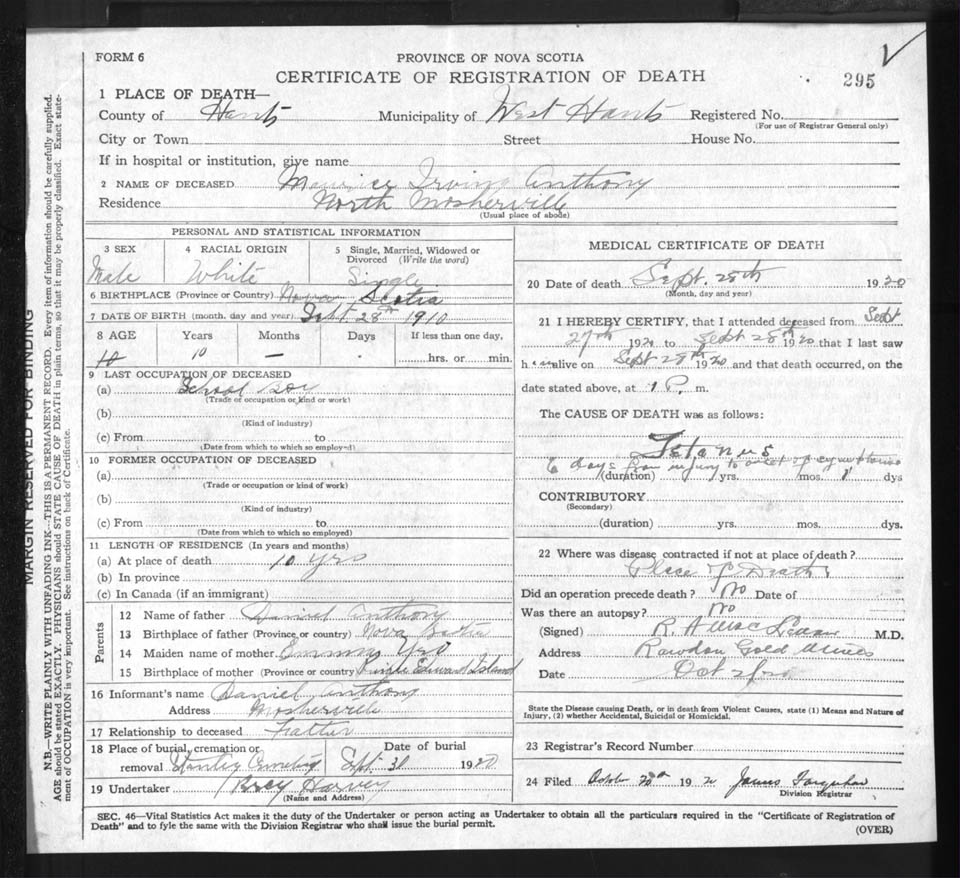 FORM 6
PROVINCE OF NOVA SCOTIA
CERTIFICATE OF REGISTRATION OF DEATH
295
1 PLACE OF DEATH—
County of Hants Municipality of West Hants Registered No.
(For use of Registrar General only)
City or Town Street House No.
If in hospital or institution, give name
2 NAME OF DECEASED Maurice Irving Anthony
Residence North Mosherville
(Usual place of abode)
PERSONAL AND STATISTICAL INFORMATION
3 SEX 4 RACIAL ORIGIN 5 Single, Married, Widowed or Divorced (Write the word)
Male White Single
6 BIRTHPLACE (Province or Country) Nova Scotia
7 DATE OF BIRTH (month, day and year) Sept. 28th 1910
8 AGE Years Months Days If less than one day,
10 10 — hrs. or min.
9 LAST OCCUPATION OF DECEASED
(a) School Boy
(Trade or occupation or kind or work)
(b)
(Kind of industry)
(c) From to
(Date from which to which so employed)
10 FORMER OCCUPATION OF DECEASED
(a)
(Trade or occupation or kind of work)
(b)
(Kind of industry)
(c) From to
(Date from which to which so employed)
11 LENGTH OF RESIDENCE (In years and months)
(a) At place of death 10 yrs
(b) In province
(c) In Canada (if an immigrant)
Parents
12 Name of father Daniel Anthony
13 Birthplace of father (Province or country) Nova Scotia
14 Maiden name of mother Emma
15 Birthplace of mother (Province or country) Prince Edward Island
16 Informant's name Daniel Anthony
Address Mosherville
17 Relationship to deceased Father
18 Place of burial, cremation or removal Stanley Cemetery Date of burial Sept. 30 1920
19 Undertaker Percy Harvey
(Name and Address)
MEDICAL CERTIFICATE OF DEATH
20 Date of death Sept. 28th 1920
(Month, day and year)
21 I HEREBY CERTIFY, that I attended deceased from Sept
27th 1920 to Sept 28th 1920 that I last saw
h im alive on Sept 28th 1920 and that death occurred, on the
date stated above, at 1 P. m.
The CAUSE OF DEATH was as follows:
Tetanus
6 days from injury to onset of symptoms
(duration) yrs. mos. 1 dys
CONTRIBUTORY
(Secondary)
(duration) yrs. mos. dys.
22 Where was disease contracted if not at place of death?
Place of Death
Did an operation precede death? No Date of
Was there an autopsy? No
(Signed) M.D.
Address Rawdon Gold Mines
Date Oct
State the Disease causing Death, or in death from Violent Causes, state (1) Means and Nature of Injury, (2) whether Accidental, Suicidal or Homicidal.
23 Registrar's Record Number
24 Filed 192 James Farquhar
Division Registrar
SEC. 46—Vital Statistics Act makes it the duty of the Undertaker or person acting as Undertaker to obtain all the particulars required in the "Certificate of Registration of
Death" and to fyle the same with the Division Registrar who shall issue the burial permit.
(OVER)
MARGIN RESERVED FOR BINDING
N.B.—WRITE PLAINLY WITH UNFADING INK—THIS IS A PERMANENT RECORD. Every item of information should be carefully supplied.
AGE should be stated EXACTLY. PHYSICIANS should STATE CAUSE OF DEATH in plain terms, so that it may be properly classified. Exact state-
ment of OCCUPATION is very important. See instructions on back of Certificate.